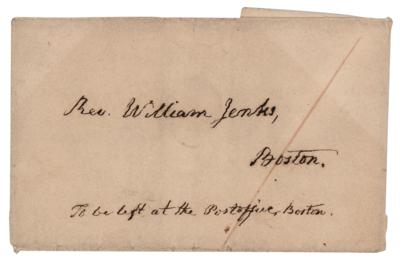 Rev. William Jenks,
Boston.
To be left at the Postoffice, Boston.